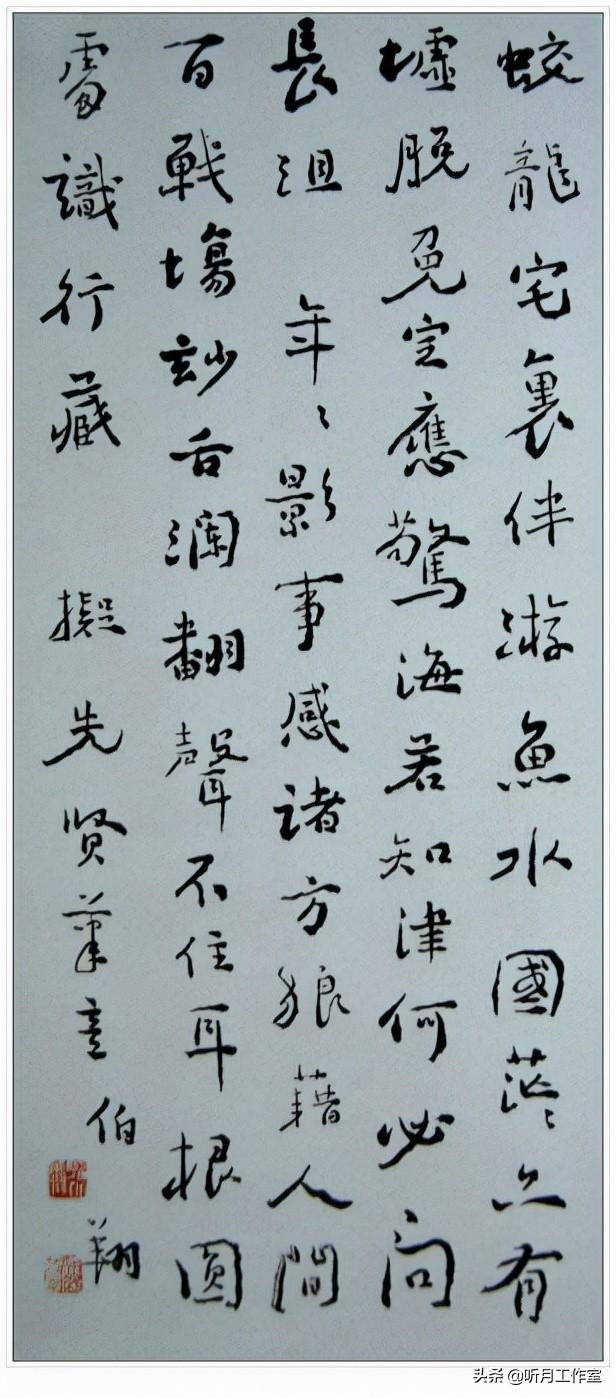 蛟龍宅裏伴游魚水國茫〻亦有
墟脫免定應驚海若知津何必問
長沮 年〻影事感諸方狼藉人間
百戰場妙舌瀾翻聲不住耳根圓
處識行藏 擬先贤筆意
伯翔
头条 @听月工作室